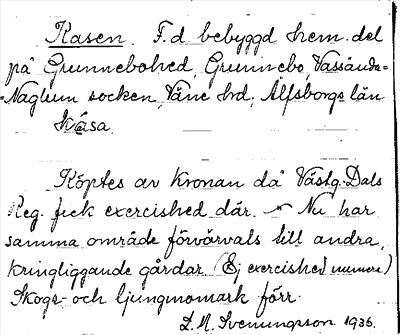 Kasen. F.d bebyggd hem.del
på Grunnebohed, Grunnebo, Vassända-
=Naglum socken, Väne hrd, Älfsborgs län
Kåsa.
Köptes av Kronan då Västg.Dals
Reg. fick exercished där. Nu har
samma område förvärvats till andra,
kringliggande gårdar. (Ej exercished numera)
Skogs- och ljungmomark förr.
L.M. Svenungsson 1936.